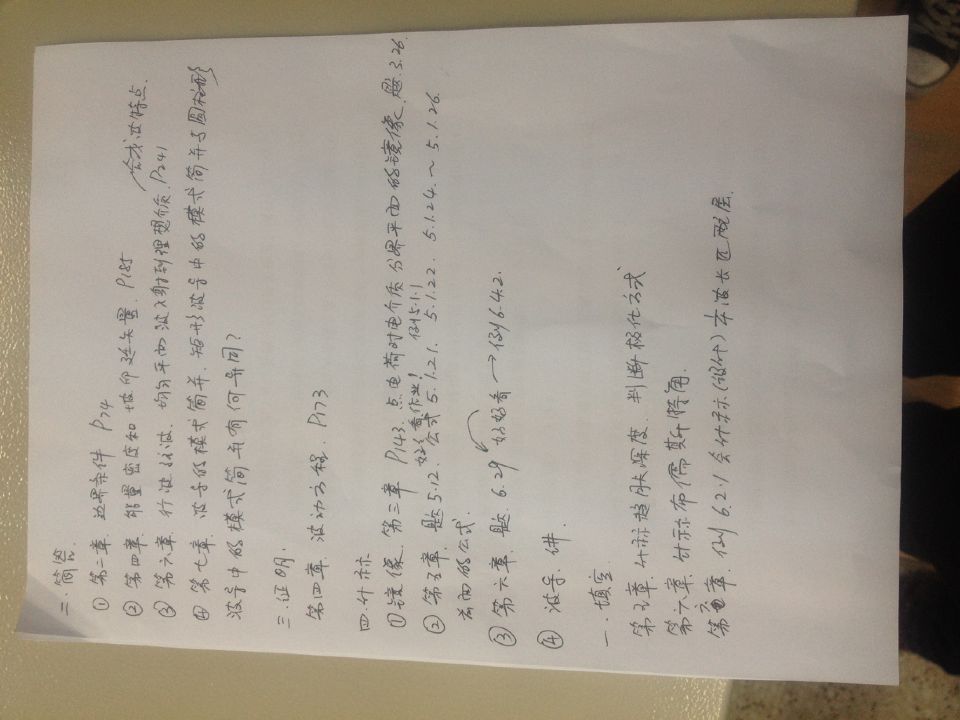 二.简答.
① 第二章. 边界条件 P74
② 第四章. 能量密度和坡印廷矢量. P185
合成波特点.
③ 第六章. 行波驻波. 均匀平面波入射到理想介质. P241
④ 第七章. 波导的模式简并. 矩形波导中的模式简并与圆柱形
波导中的模式简并有何异同?
三.证明.
第四章. 波动方程. P173
四.计称
①镜像. 第三章 P143. 点电荷对电介质分界平面的镜像. 题.3.26.
好好看作业! 例5.1.1
② 第五章. 题5.12. 公式 5.1.21. 5.1.22. 5.1.24.~5.1.26.
前面的公式.
③ 第六章. 题. 6.29 好好看 → 例6.4.2.
④ 波导. 讲.
一.填空.
第五章. 计称趋肤深度. 判断极化方式
第六章. 计称布儒斯特角.
第六章. 例 6.2.1 会计称(设计) 波长匹配层.